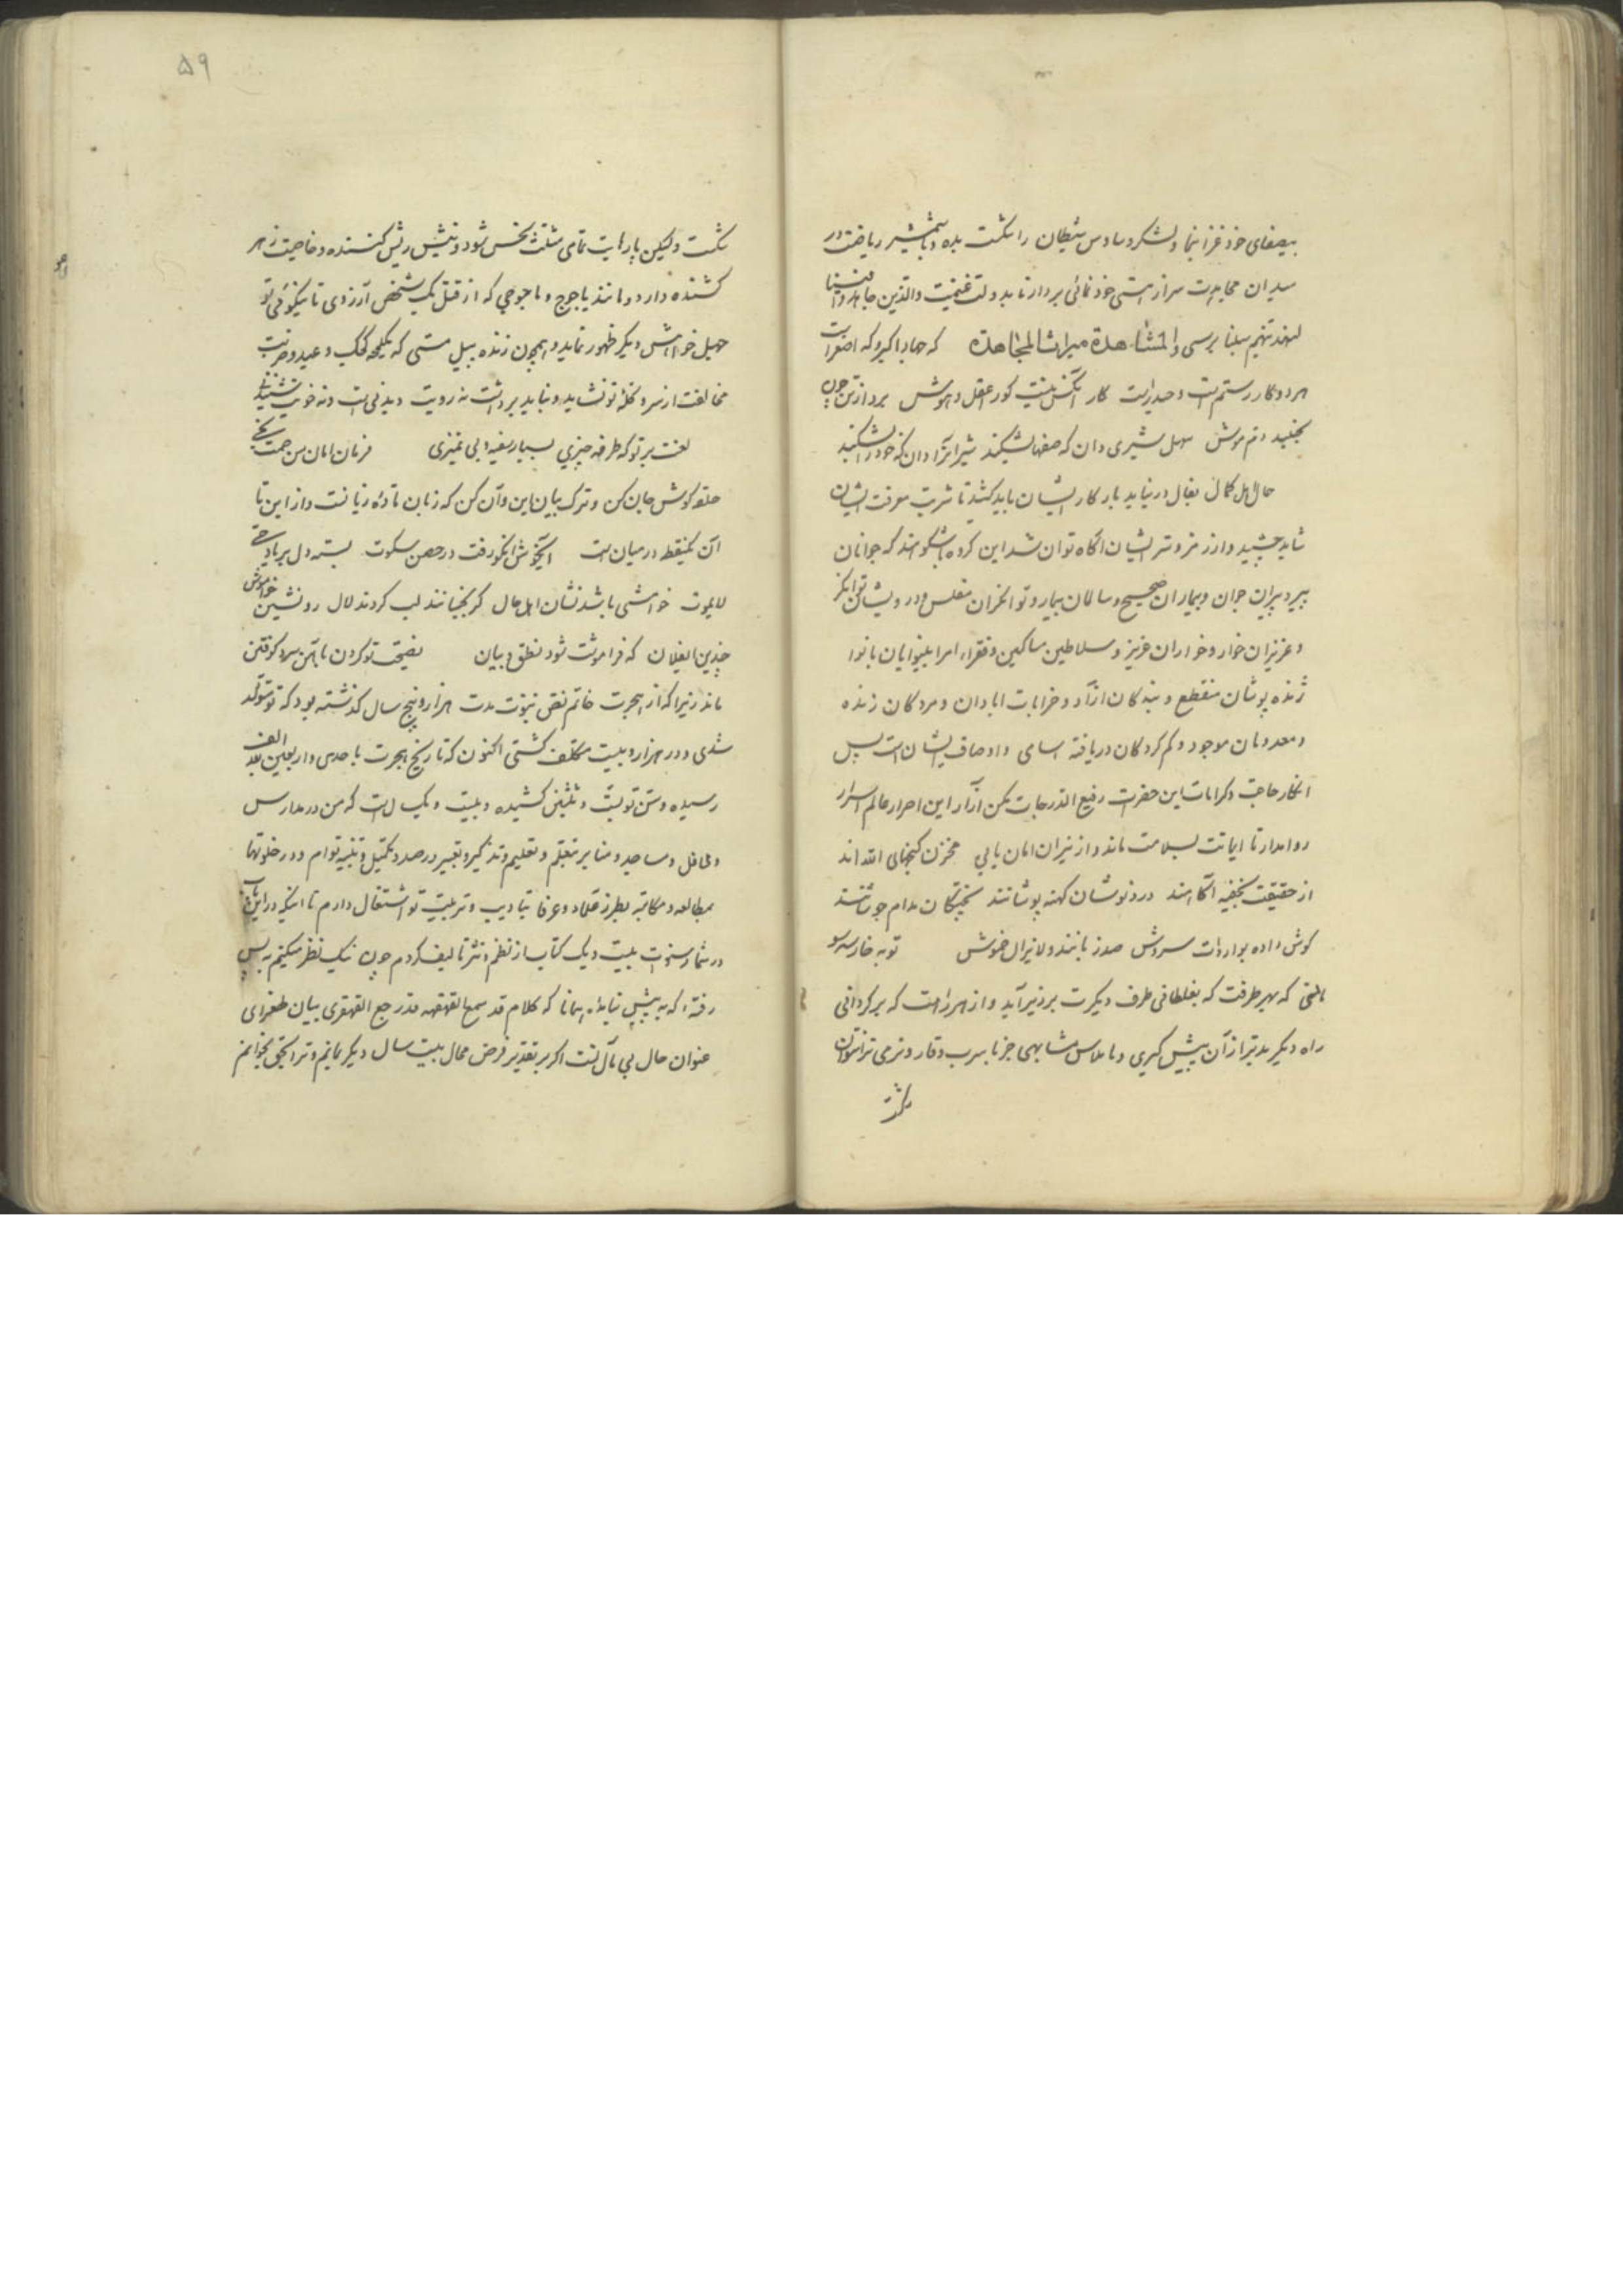 بیصفای خود غزا نما و لشکر وساوس شیطان را شکست بده و با شمشیر ریاضت در
میدان مجاهدت سر از هستی خود نمائی بردار تا بدولت غنیمت والذین جاهدوا فینا
لنهدینهم سبلنا برسی والمشاهدة میراث المجاهدة که جهاد اکبر و که اصغر است
هر دو کار رستم است و حیدر است کار آنکس نیست کور عقل و هوش پرد از تن چون
بجنبد دم موش سهل شیری دان که صفها بشکند شیر آنرا دان که خود را بشکند
حال اهل کمال بقال در نیاید بار کار ایشان باید کشید تا شربت معرفت ایشان
شاید چشید و از رمز و سر ایشان آگاه توان شد این گروه باشکوهند که جوانان
پیر و پیران جوان و بیماران صحیح و سالمان بیمار و توانگران مفلس و درویشان توانگر
و عزیزان خوار و خواران عزیز و سلاطین مساکین و فقراء امرا بینوایان با نوا
ژنده پوشان منقطع و بندگان آزاد و خرابات آبادان و مردگان زنده
و معدومان موجود و گم کردگان دریافته اسامی و اوصاف ایشان است پس
انکار حاجت و کرامات این حضرت رفیع الدرجات مکن آزار این احرار عالم اسرار
روا مدار تا ایمانت بسلامت ماند و از نیران امان یابی مخزن گنجهای الله اند
از حقیقت بخفیه آگاهند درد نوشان کهنه پوشانند پختگان مدام جوشانند
گوش داده بواردات سروش صد زبانند و لا یزال خموش تو به خار سه سو
مانی که بهر طرفت که بغلطانی طرف دیگرت بر زبر آید و از هر راهت که برگردانی
راه دیگر بدتر از آن پیش گیری و با ملاس مشابهی جز با سرب وقار و نرمی ترا نتوان
شکست
۵۹
شکست ولیکن پارهایت تمای مثلث نحس شود و نیش ریش کننده و خاصیت زهر
کشنده دارد و مانند یاجوج و ماجوجی که از قتل یک شخص آرزوی تا نیکوئی تو
چهل خواهش دیگر ظهور نماید و همچون زنده پیل مستی که بکیجه کجک و عید و ضربت
مخالفت از سر و کله تو نشاید و نباید برداشت نه رویت دیدنی است و نه خویت شنیدنی
لعنت بر تو که طرفه چیزی بسیار سفیه و بی تمیزی فرمان امان من حمت نجی
حلقه گوش جان کن و ترک بیان این و آن کن که زبان تا داه زیانست و از این تا
آن یکنقطه در میان است آیخوش آنکو رفت در حصن سکوت بسته دل بر یاد حی
لایموت خوامشی باشد نشان اهل حال گر بجنبانند لب گردند لال رو نشین خاموش
چندین ایفلان که فراموشت شود نطق و بیان نصیحت تو کردن بآهن سرد کوفتن
ماند زیرا که از هجرت خاتم نقض نبوت مدت هزار و پنج سال گذشته بود که تو متولد
شدی و در هزار و بیست مکلف گشتی اکنون که تاریخ هجرت باحدی و اربعین بعد الف
رسیده و سن تو بست و ثلثین کشیده و بیست و یک سال است که من در مدارس
و محافل و مساجد و منابر بتعلم و تعلیم و تذکیر و تعبیر در صدد تکمیل و تنبیه توام و در خلوتها
بمطالعه و مکاتبه بطرز علماء و عرفا بتادیب و تربیت تو اشتغال دارم تا اینکه در این باب
در شمار سنوات بیست و یک کتاب از نظم و نثر تالیف کردم چون نیک نظر میکنم به پس
رفته‌ که به پیش نیاید همانا که کلام قد سمع القهقهه قد رجع القهقری بیان طغرای
عنوان حال بی مآل تست اگر بر تقدیر فرض محال بیست سال دیگر بمانم و ترا بحق بخوانم